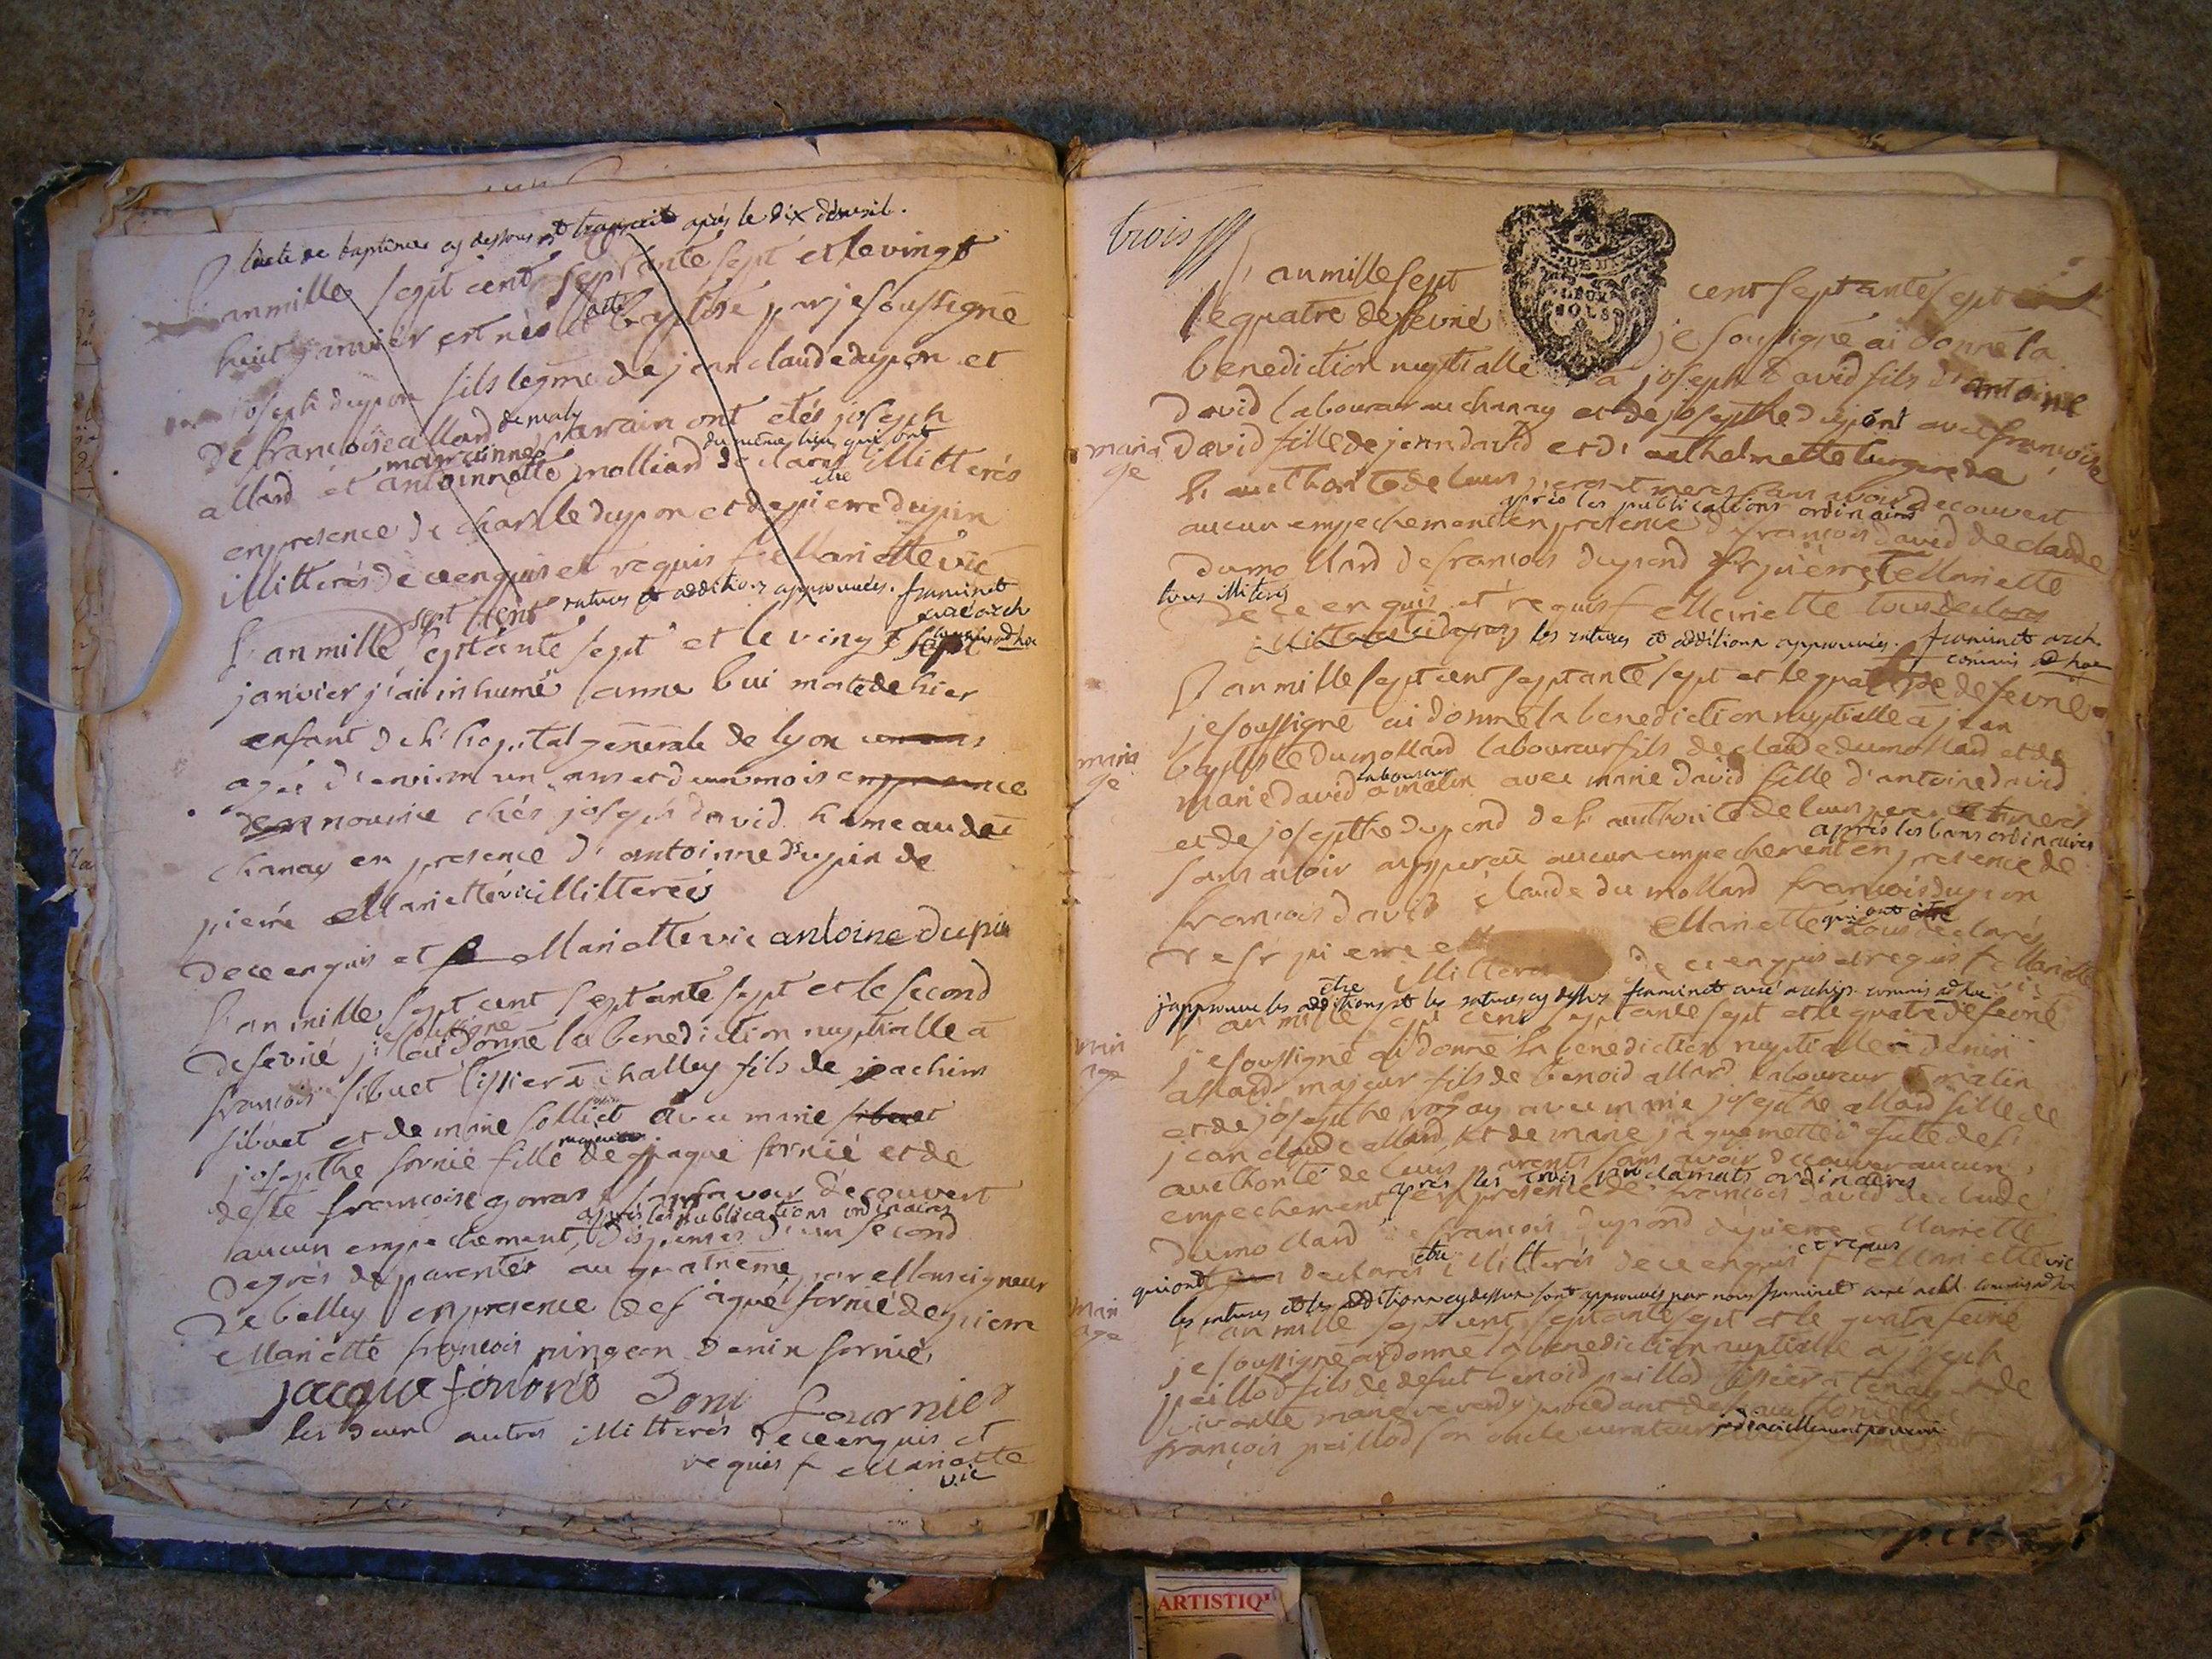 l'acte de baptême cy dessous est transcrit après le dix d'avril.
L'an mille sept cent septante sept et le vingt
huit janvier est nés et a été baptisé par je soussigné
joseph dupon fils legme de jean claude dupon et
de francoise allard de maly parrain ont etés joseph
allard et marainne antoinnette molliard du même lieu qui ont declarés être illitterés
en presence de charle dupon et de pierre dupin
illitterés de ce enquis et requis f Mariette vic
ratures et additions approuvées. framinet curé arch commis ad hoc
L'an mille sept cent septante sept et le vingt sept
janvier j'ai inhumé anne bui morte de hier
enfant de l'hopital generale de lyon
agée d'environ un ans et d'un mois en presence
de en nourice chés joseph david hameau de
chanay en presence d'antoinne dupin de
pierre Mariette vic illitterés
de ce enquis et f Mariette vic antoine dupin
L'an mille sept cent septante sept et le second
de fevrié je soussigné ai donné la benediction nuptialle a
francois sibuet tissier a challey fils de joachim
sibuet et de marie colliet avec marie sibuet
josepthe fornié fille majeure de jaque fornié et de
defte francoise gonas sans avoir decouvert
aucun empechement, après les publications ordinaires dispensés d'un second
degrés de parentés au quatrieme par Monseigneur
de belley en presence de jaque fornié de pierre
Mariette francois pingeon denin fornié
jacque fónonó Deni fournier
les deux autres illitterés de ce enquis et
requis f Mariette
vic
trois
DEUX SOLS
L'an mille sept cent septante sept
le quatre de fevrié je soussigné ai donné la
benediction nuptialle a joseph david fils d'antoine
david laboureur au chanay et de josepthe dupont avec francoise
maria
ge
david fille de jean david et d'
l'authorité de leurs peres et meres sans avoir decouvert
aucun empechement après les publications ordinaires en presence de francois david de claude
dumollard de francois dupond de pierre Mariette
tous illiterés
de ce enquis et requis f Mariette tous declarés
illitterés les ratures et additions approuvées. framinet arch.
commis ad hoc
L'an mille sept cent septante sept et le quatre de fevrié
je soussigné ai donné la benediction nuptialle a jean
maria
ge
baptiste dumollard laboureur fils de claude dumollard et de
marie david laboureur a malin avec marie david fille d'antoine david
et de josepthe dupond de l'authorité de leurs peres et meres
sans avoir apperceu aucun empechement après les bans ordinaires en presence de
francois david claude du mollard francois dupon
de sr pierre Mariette qui ont tous declarés
être illitterés de ce enquis et requis f Mariette
vic
j'approuve les additions et les ratures cy dessus framinet curé archip. commis ad hoc
L'an mille sept cent septante sept et le quatre de fevrié
maria
age
je soussigné ai donné la benediction nuptialle a denin
allard majeur fils de benoid allard laboureur a malin
et de josepthe avec marie josepthe allard fille de
jean claude allard et de marie jaquemettei de l'
authorité de leurs parents sans avoir decouver aucun
empechement après les trois proclamats ordinaires en presence de francois david de claude
dumollard de francois dupond de pierre Mariette
qui ont declarés être illitterés de ce enquis et requis f Mariette vic
les ratures et les additions cy dessus sont approuvées par nous framinet curé arch. commis ad hoc
mari
age
L'an mille sept cent septante sept et le quatre fevrié
je soussigné ai donné la benediction nuptialle a joseph
peillod fils de defut benoid peillod tissier a tenay et de
marie reverdy procedant de l'authorité de
françois peillod son oncle curateur judiciellement pourvu
ARTISTIQ